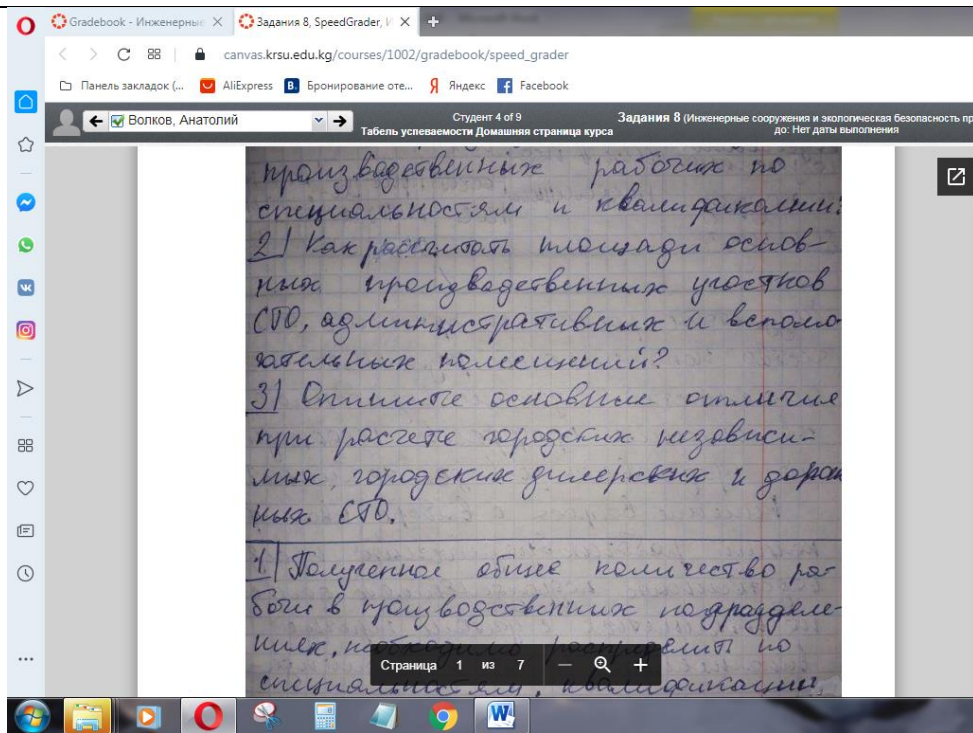 Gradebook - Инженерные
Задания 8, SpeedGrader, И
canvas.krsu.edu.kg/courses/1002/gradebook/speed_grader
Панель закладок (...
AliExpress
B. Бронирование оте...
Я Яндекс
Facebook
Волков, Анатолий
Студент 4 of 9
Табель успеваемости Домашняя страница курса
Задания 8 (Инженерные сооружения и экологическая безопасность пр
до: Нет даты выполнения
производственных рабочих по
специальностям и квалификации?
2) Как рассчитать площади основ-
ных производственных участков
СТО, административных и вспомо-
гательных помещений?
3) Опишите основные отличия
при расчете городских независи-
мых, городских дилерских и дорож
ных СТО.
1) Полученное общее количество ра-
бочих в производственных подразделе-
ниях, необходимо распределить по
специальностям, квалификации,
Страница 1 из 7